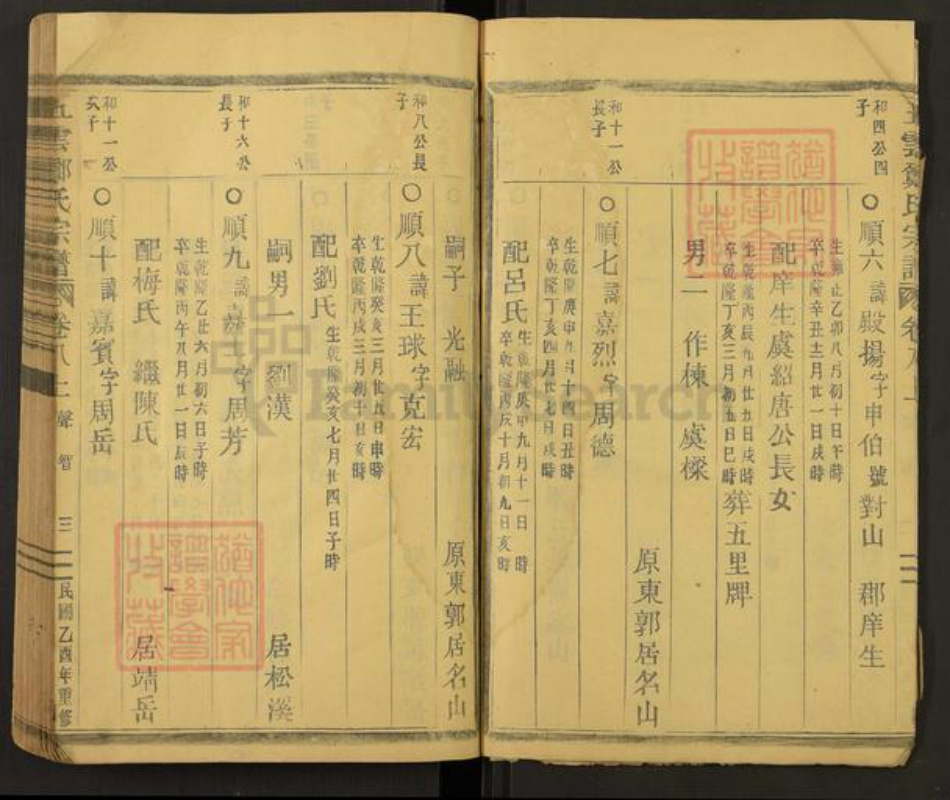 和四公四子
○順六諱殿揚字申伯號對山 郡庠生
生雍正乙卯八月初十日午時
卒乾隆辛丑十二月廿一日戌時
配庠生虞紹唐公長女
生乾隆丙辰九月廿五日戌時
卒乾隆丁亥三月初五日巳時
葬五里牌
男二 作棟 虞樑
原東郭居名山
和十一公長子
○順七諱嘉烈字周德
生乾隆庚申九月十四日丑時
卒乾隆丁亥四月廿七日戌時
配呂氏
生乾隆庚申九月十一日 時
卒乾隆丙辰十月初九日亥時
嗣子 光融
原東郭居名山
和八公長子
○順八諱王球字克宏
生乾隆癸亥三月廿五日申時
卒乾隆丙戌三月初十日亥時
配劉氏
生乾隆癸亥七月廿四日子時
嗣男一 劉漢
居松溪
和十六公長子
○順九諱嘉 字周芳
生乾隆乙丑六月初六日子時
卒乾隆丙午八月廿一日辰時
配梅氏 繼陳氏
居靖岳
和十一公次子
○順十諱嘉賓字周岳
五雲鄭氏宗譜
卷八上
聲
智
三
民國乙酉年重修
FamilySearch